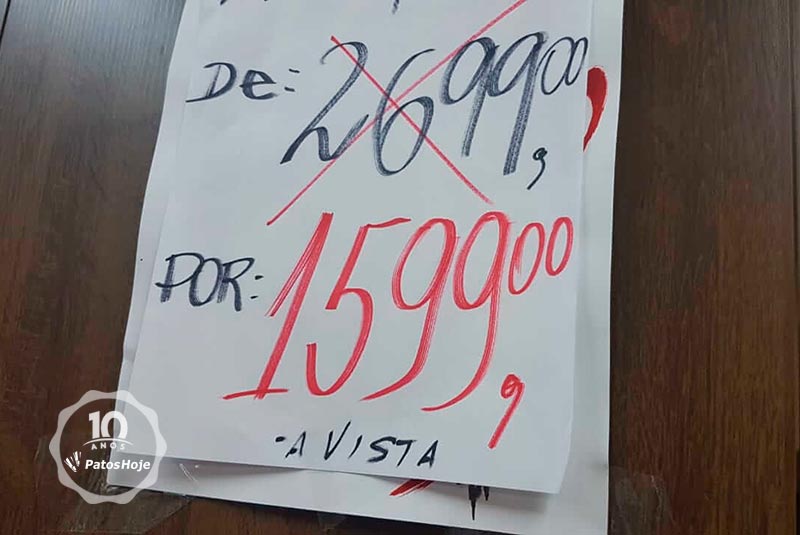 DE: 2699,00
POR: 1599,00
-A VISTA
10
ANOS
PatosHoje